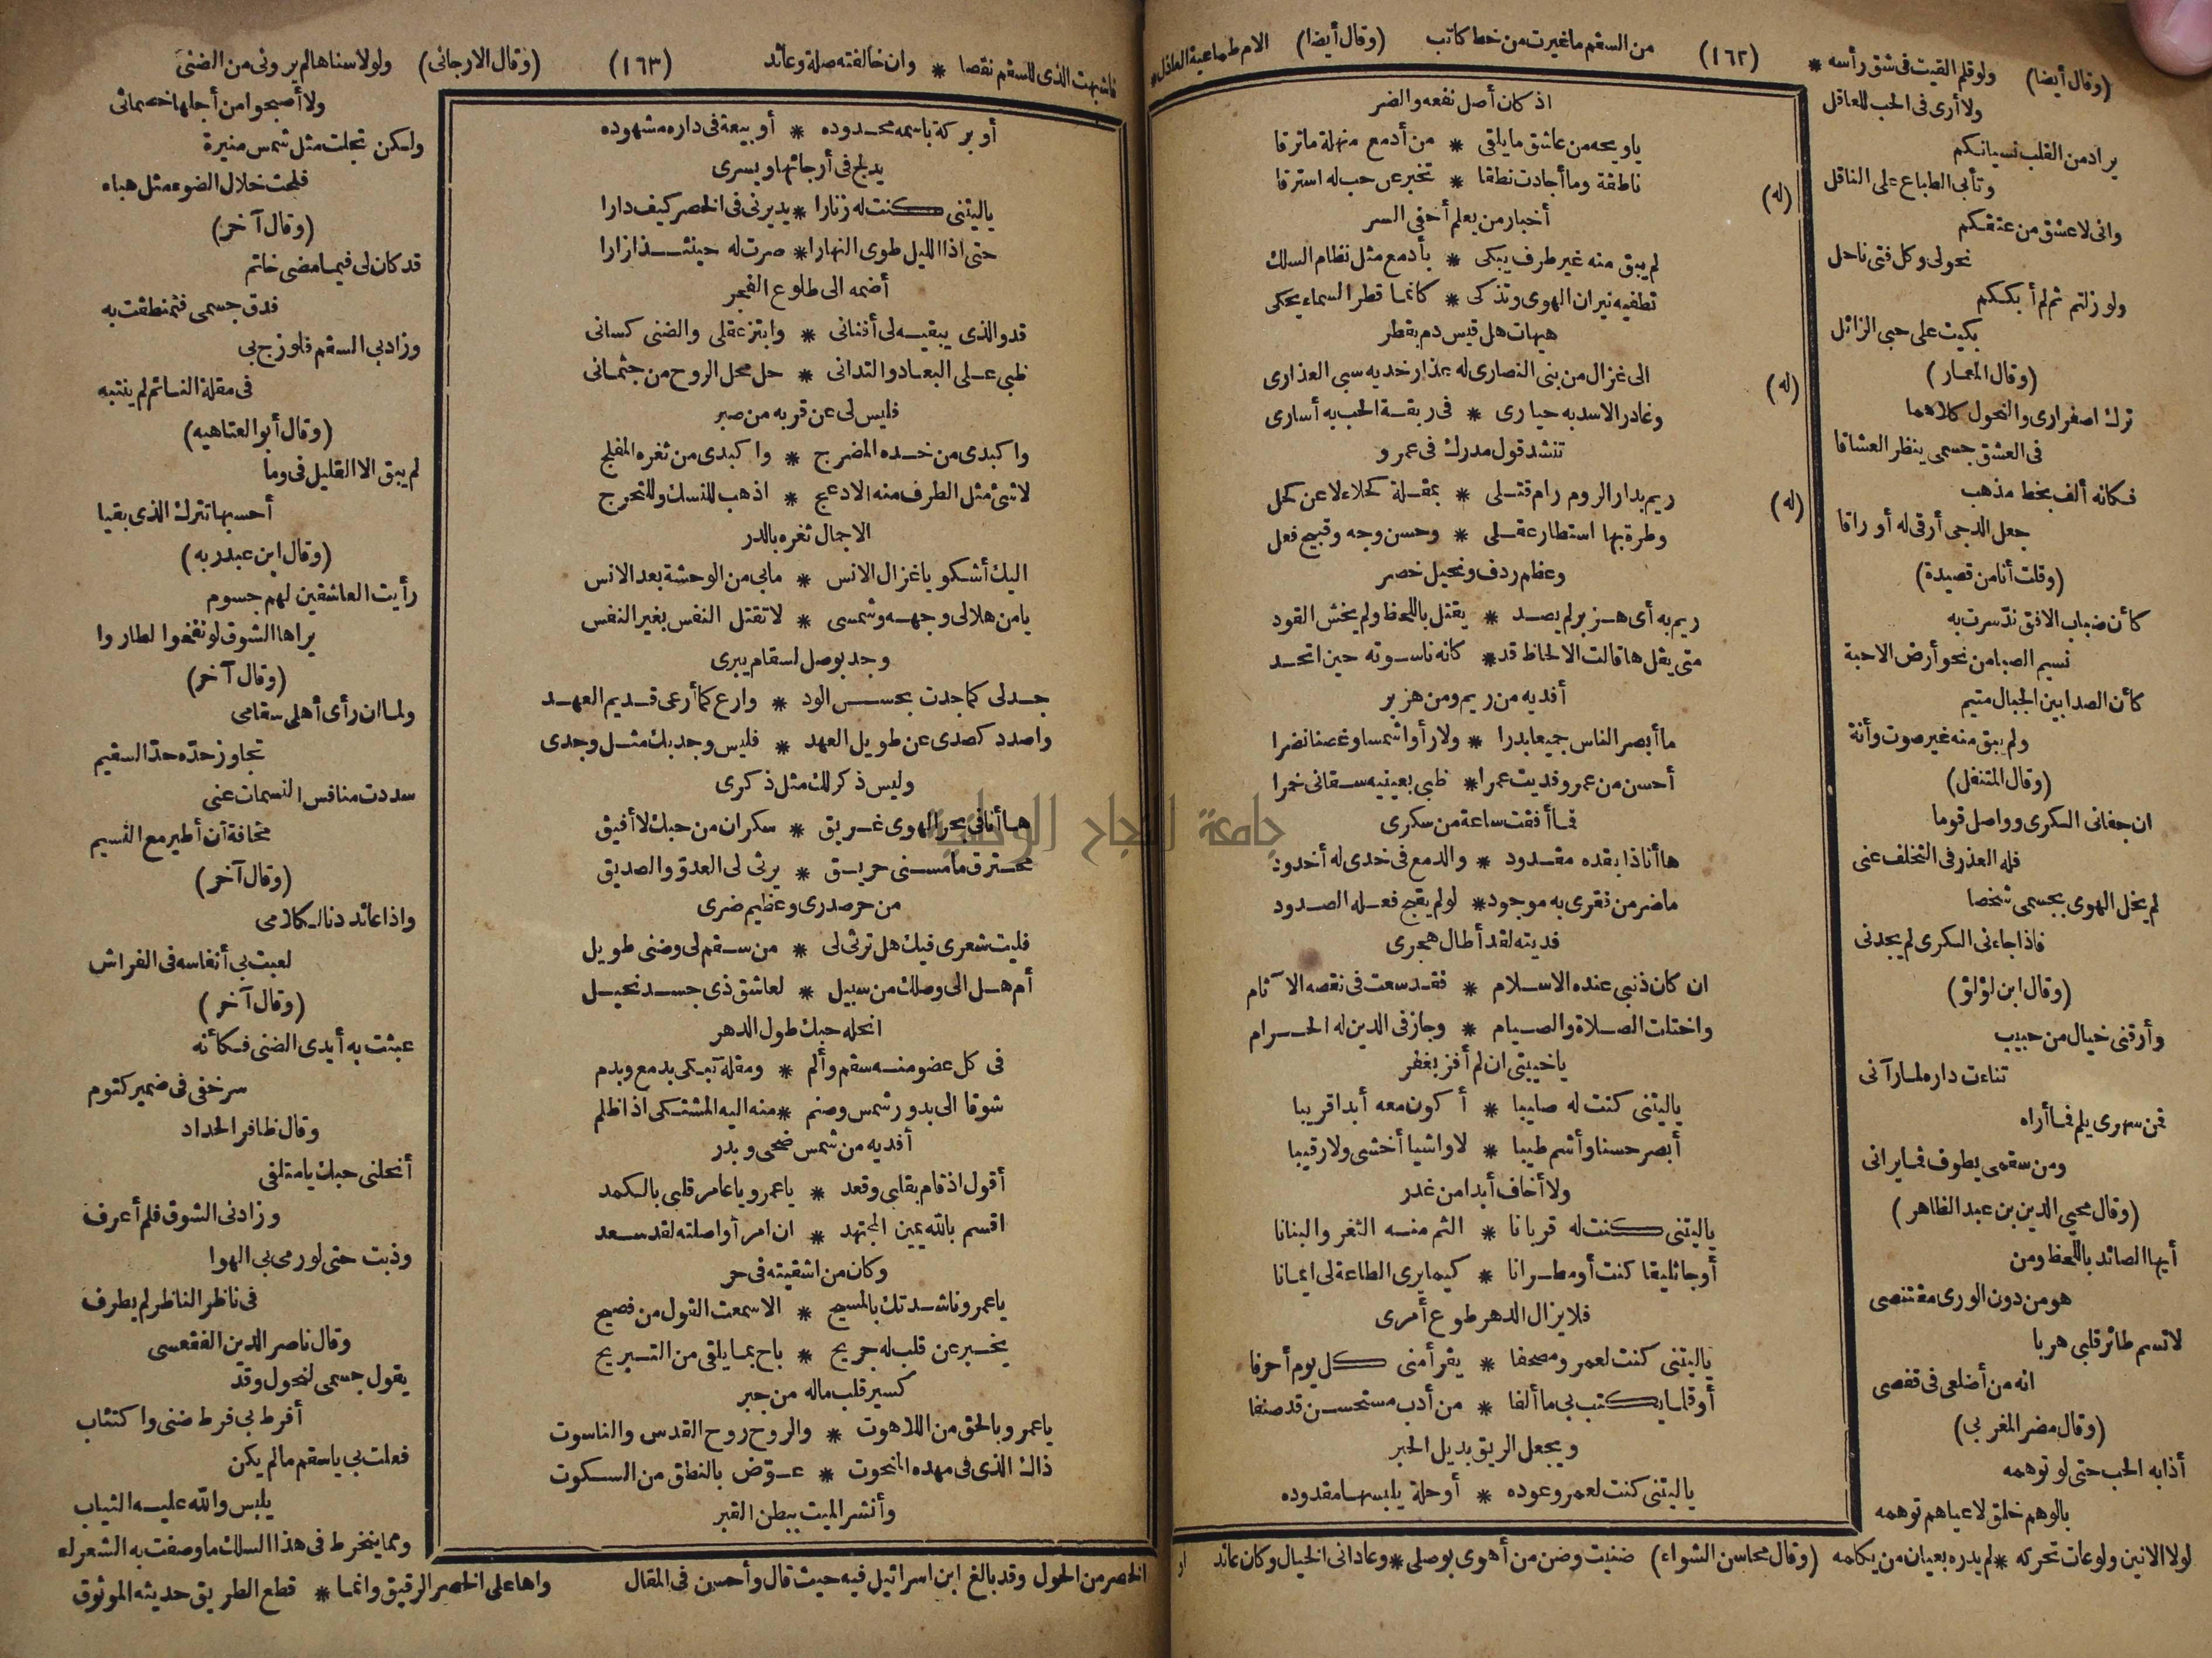 (وقال أيضا) ولو قلم القيت في شق رأسه * (١٦٢) من السقم ما غيرت من خط كاتب (وقال أيضا) الام طماعية العاذل *
ولا أرى في الحب للعاقل
يراد من القلب نسيانكم
وتأبى الطباع على الناقل
وانى لاعشق من عشقكم
نحولى وكل فتى ناحل
ولو زلتم ثم لم أبككم
بكيت على حبى الزائل
(وقال المعمار)
ترك اصفرارى والنحول كلاهما
في العشق جسمى ينظر العشاقا
فكأنه ألف بخط مذهب
جعل الدجى أرقى له أوراقا
(وقلت أنا من قصيدة)
كأن ضباب الافق ندّ سرت به
نسيم الصبا من نحو أرض الاحبة
كأن الصدا بين الجبال متيم
ولم يبق منه غير صوت وأنة
(وقال المتنفل)
ان جفانى الكرى وواصل قوما
فله العذر في التخلف عنى
لم يخل الهوى بجسمى شخصا
فاذا جاءنى الكرى لم يجدنى
(وقال ابن لؤلؤ)
وأرقنى خيال من حبيب
تناءت داره لما رآنى
فمن سهرى يلم فما أراه
ومن سقمى يطوف فما يرانى
(وقال محيى الدين بن عبد الظاهر)
أيها الصائد باللحظ ومن
هو من دون الورى مقتنصى
لا تسم طائر قلبى هربا
انه من أضلعى في قفصى
(وقال مضر المغربى)
أذابه الحب حتى لو توهمه
بالوهم خلق لاعياهم توهمه
اذ كان أصل نفعه والضر
ياويحه من عاشق ما يلقى * من أدمع منهلة ما ترقا
ناطقة وما أجادت نطقا * تخبر عن حب له استرقا
أخبار من يعلم أخفى السر
(له)
لم يبق منه غير طرف يبكى * بأدمع مثل نظام السلك
تطفيه نيران الهوى وتذكى * كأنما قطر السماء يحكى
هيهات هل قيس دم بقطر
(له)
الى غزال من بنى النصارى له عذار خديه سبى العذارى
وغادر الاسد به حيارى * في ربقة الحب به أسارى
تنشد قول مدرك في عمرو
(له)
ريم بدار الروم رام قتلى * بمقلة كحلاء لا عن كحل
وطرة بها استطار عقلى * وحسن وجه وقبيح فعل
وعظم ردف ونحيل خصر
ريم به أى هزبر لم يصد * يقتل باللحظ ولم يخش القود
متى يقل ها قالت الالحاظ قد * كأنه ناسوته حين اتحد
أفديه من ريم ومن هزبر
ما أبصر الناس جميعا بدرا * ولا رأوا شمسا وغصنا نضرا
أحسن من عمرو فديت عمرا * ظبى بعينيه سقانى خمرا
فما أفقت ساعة من سكرى
ها أنا ذا بقده مقدود * والدمع في خدى له أخدود
ما ضر من فقرى به موجود * لو لم يقبح فعله الصدود
فديته لقد أطال هجرى
ان كان ذنبى عنده الاسلام * فقد سعت في نقصه الآثام
واختلت الصلاة والصيام * وجاز في الدين له الحرام
ياخيبتى ان لم أفز بغفر
ياليتنى كنت له صليبا * أكون معه أبدا قريبا
أبصر حسنا وأشم طيبا * لا واشيا أخشى ولا رقيبا
ولا أخاف أبدا من غدر
ياليتنى كنت له قربانا * الثم منه الثغر والبنانا
أو جاثليقا كنت أو مطرانا * كيما يرى الطاعة لى ايمانا
فلا يزال الدهر طوع أمرى
ياليتنى كنت لعمرو مصحفا * يقرأ منى كل يوم أحرفا
أو قلما يكتب بى ما ألفا * من أدب مستحسن قد صنفا
ويجعل الريق بديل الحبر
ياليتنى كنت لعمرو عوده * أو حلة يلبسها مقدوده
لولا الانين ولوعات تحركه * لم يدره بعيان من يكلمه (وقال محاسن الشواء) ضنيت وضن من أهوى بوصلى * وعادانى الخيال وكان عائد
او
فاشبهت الذى للسقم نقصا * وان خالفته صلة وعائد (١٦٣) (وقال الارجانى) ولولا سناها لم يرونى من الضنى
أو بركة باسمه محدوده * أو بيعة في داره مشهوده
يديلج في أرجائها ويسرى
ياليتنى كنت له زنارا * يديرنى في الخصر كيف دارا
حتى اذا الليل طوى النهارا * صرت له حينئذ ازارا
أضمه الى طلوع الفجر
قد والذى يبقيه لى أفنانى * وابتز عقلى والضنى كسانى
ظبى على البعاد والتدانى * حل محل الروح من جثمانى
فليس لى عن قربه من صبر
واكبدى من خده المضرج * واكبدى من ثغره المفلج
لا شئ مثل الطرف منه الادعج * اذهب للنسك وللتحرج
الا جمال ثغره بالدر
اليك أشكو ياغزال الانس * ما بى من الوحشة بعد الانس
يا من هلالى وجهه وشمسى * لا تقتل النفس بغير النفس
وجد بوصل لسقام يبرى
جد لى كما جدت بحسن الود * وارع كما أرعى قديم العهد
واصدد كصدى عن طويل العهد * فليس وجد بك مثل وجدى
وليس ذكر لك مثل ذكرى
ها أنا في بحر الهوى غريق * سكران من حبك لا أفيق
محترق ما مسنى حريق * يرثى لى العدوّ والصديق
من حر صدرى وعظيم ضرى
فليت شعرى فيك هل ترثى لى * من سقم لى وضنى طويل
أم هل الى وصلك من سبيل * لعاشق ذى جسد نحيل
انحله حبك طول الدهر
في كل عضو منه سقم وألم * ومقلة تبكى بدمع وبدم
شوقا الى بدور شمس وصنم * منه اليه المشتكى اذا ظلم
أفديه من شمس ضحى وبدر
أقول اذ قام بقلبى وقعد * ياعمرو ياعامر قلبى بالكمد
اقسم بالله يمين المجتهد * ان امرأ واصلته لقد سعد
وكان من اشقيته في حر
ياعمرو ناشدتك بالمسيح * الا سمعت القول من فصيح
يخبر عن قلب له جريح * باح بما يلقى من التبريح
كسير قلب ماله من جبر
ياعمرو بالحق من اللاهوت * والروح روح القدس والناسوت
ذاك الذى في مهده المنحوت * عوّض بالنطق من السكوت
وأنشر الميت ببطن القبر
ولا أصبحوا من أجلها خصمائى
ولكن تجلت مثل شمس منيرة
فلحت خلال الضوء مثل هباء
(وقال آخر)
قد كان لى فيما مضى خاتم
فدق جسمى فتمنطقت به
وزاد بى السقم فلو زج بى
في مقلة النائم لم ينتبه
(وقال أبو العتاهيه)
لم يبق الا القليل فى وما
أحسبها تترك الذى بقيا
(وقال ابن عبدربه)
رأيت العاشقين لهم جسوم
براها الشوق لو نفخوا لطاروا
(وقال آخر)
ولما ان رأى أهلى سقامى
تجاوز حدّه حدّ السقيم
سددت منافس النسمات عنى
مخافة أن أطير مع النسيم
(وقال آخر)
واذا عائد دنا لكلامى
لعبت بى أنفاسه في الفراش
(وقال آخر)
عبثت به أيدى الضنى فكأنه
سر خفى في ضمير كتوم
وقال ظافر الحداد
أنحلنى حبك يا متلفى
وزادنى الشوق فلم أعرف
وذبت حتى لو رمى بى الهوا
في ناظر الناظر لم يطرف
وقال ناصر الدين الفقعسى
يقول جسمى لنحول وقد
أفرط بى فرط ضنى واكتئاب
فعلت بى ياسقم ما لم يكن
يلبس والله عليه الثياب
ومما ينخرط في هذا السلك ما وصفت به الشعراء
الخصر من الحول وقد بالغ ابن اسرائيل فيه حيث قال وأحسن في المقال واها على الخصر الرقيق وانما * قطع الطريق حديثه الموثوق
جامعة النجاح الوطنية